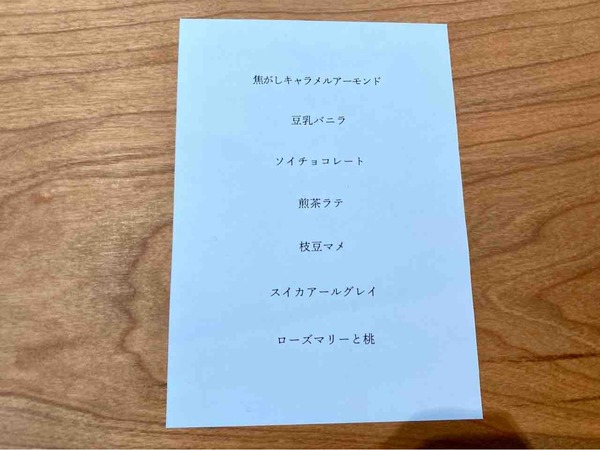 焦がしキャラメルアーモンド
豆乳バニラ
ソイチョコレート
煎茶ラテ
枝豆マメ
スイカアールグレイ
ローズマリーと桃